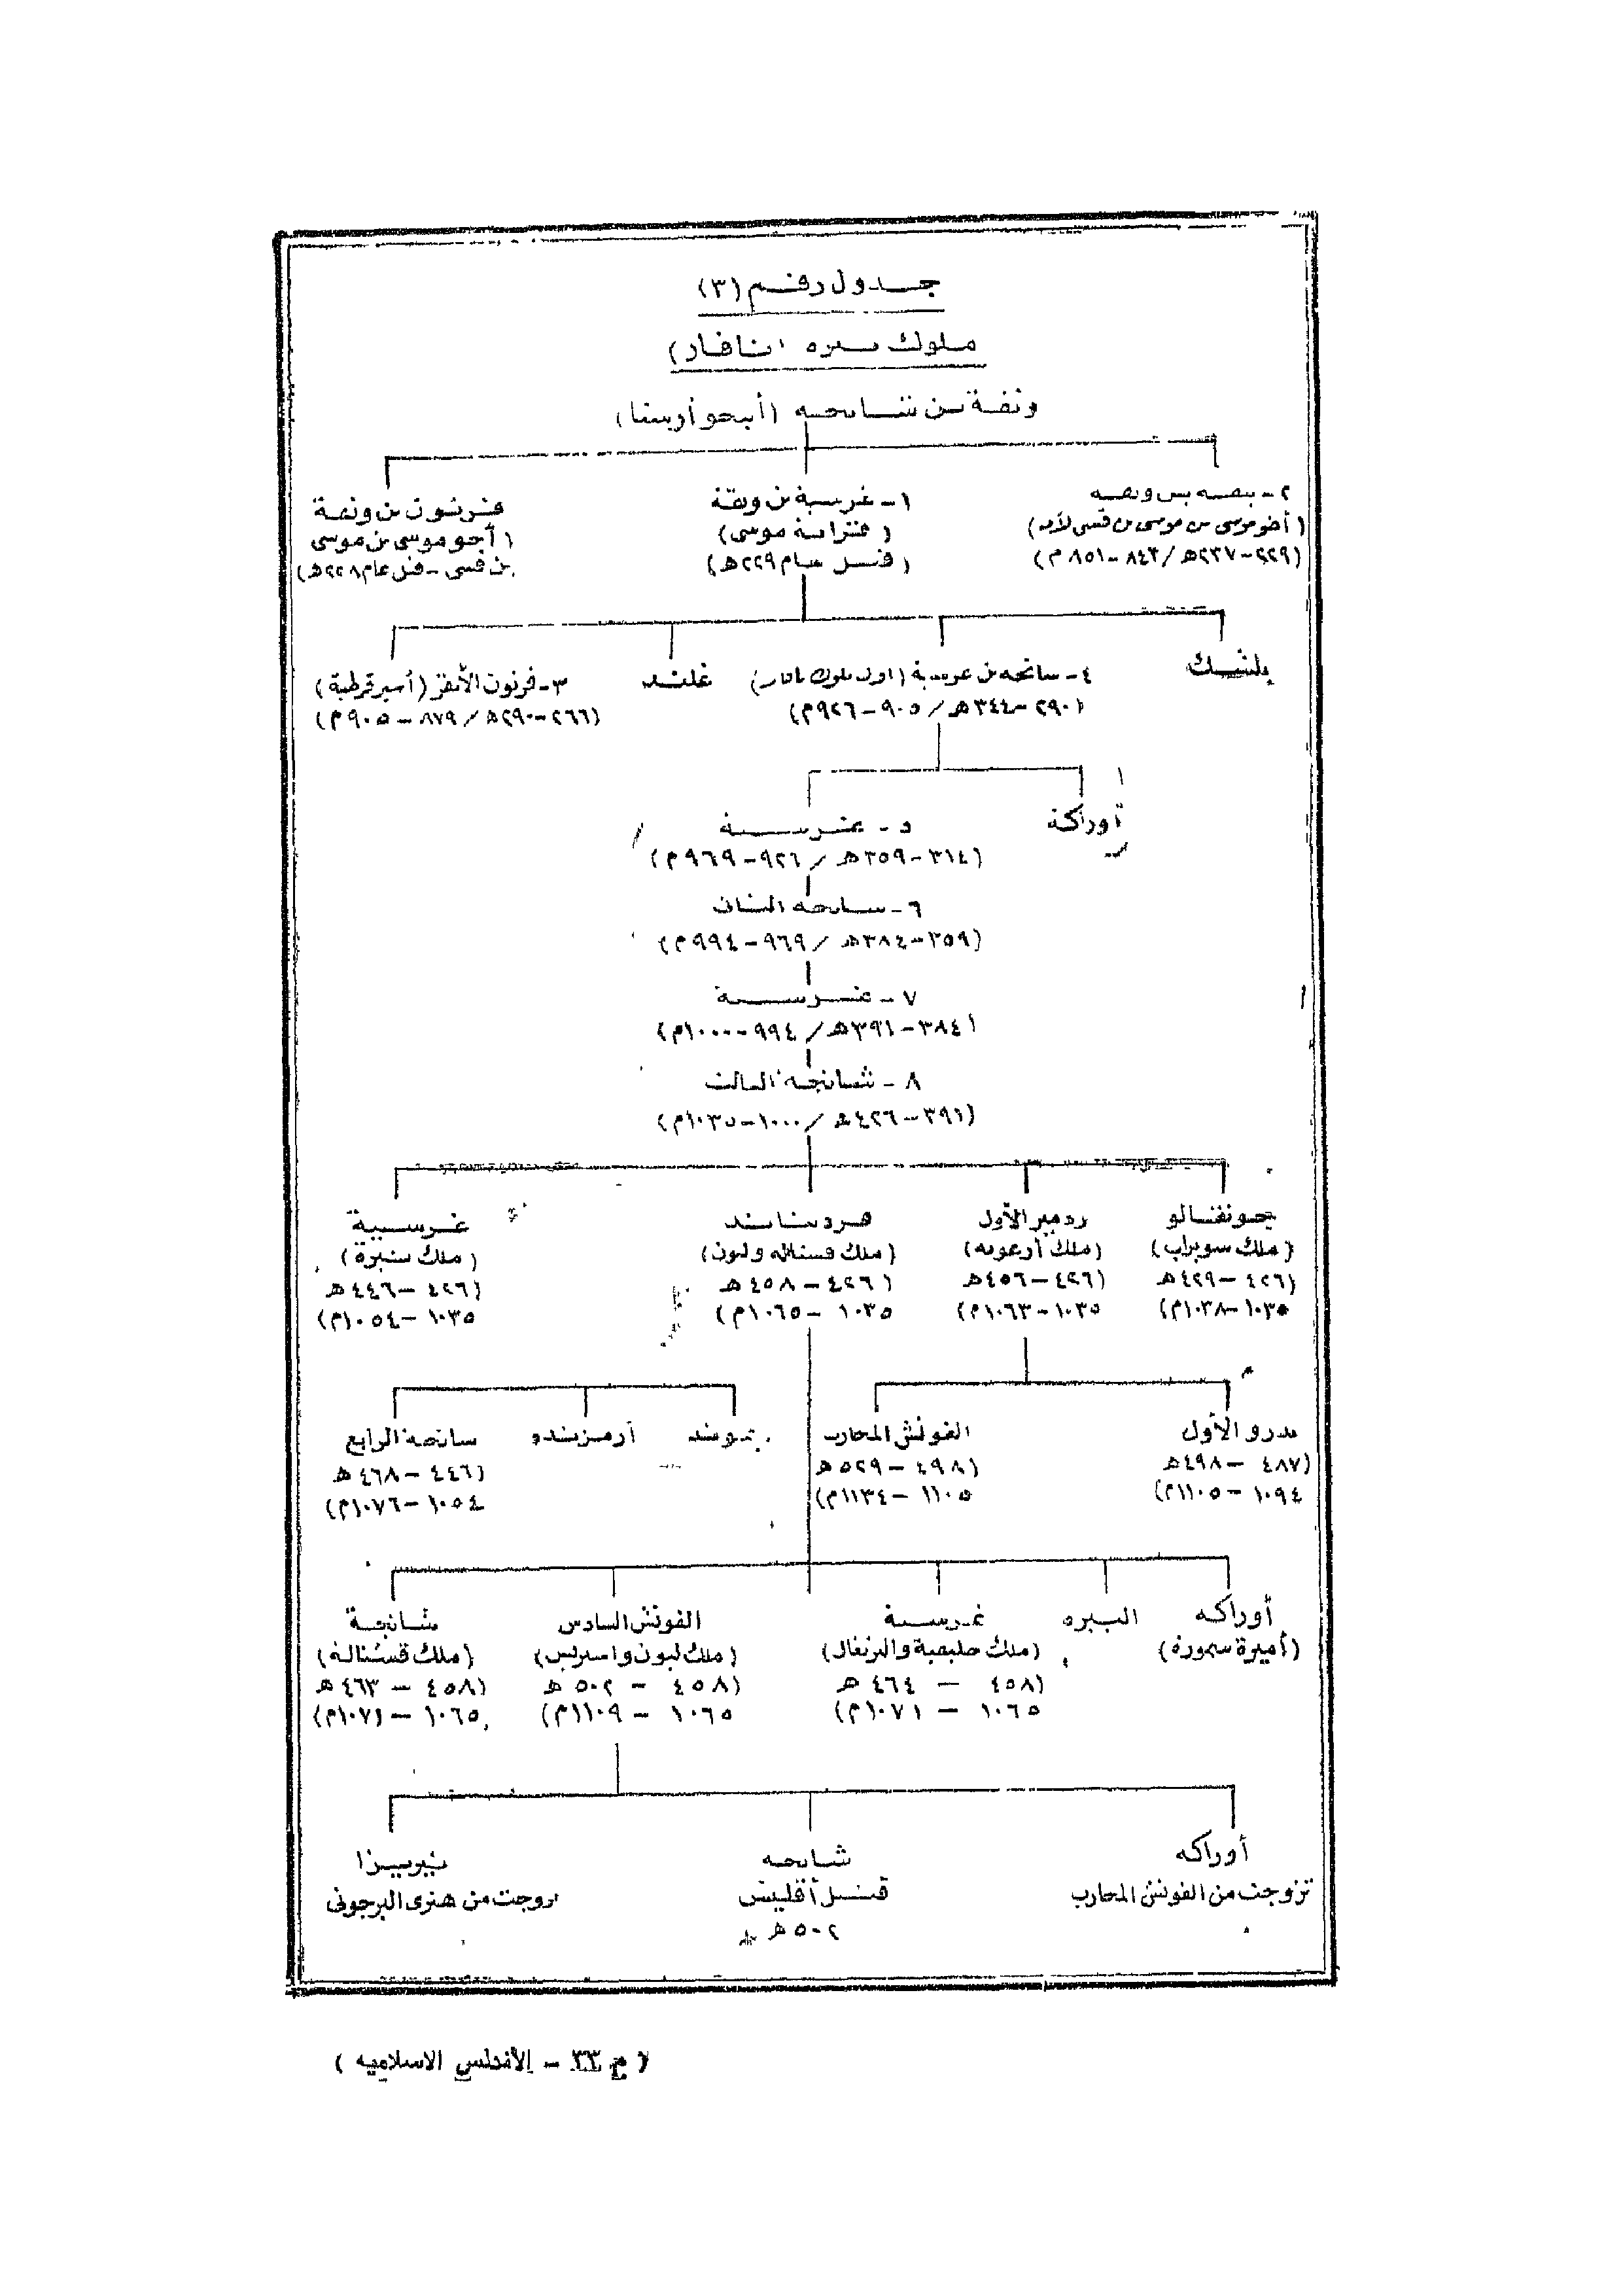 جدول رقم (٣)
ملوك نبره (نافار)
ونقة بن شانجه (أنيجو أريستا)
٢ - ينقه بن ونقه
(أخو موسى بن موسى بن قسى لأمه)
(٢٢٩-٢٣٧هـ/٨٤٣-٨٥١م)
١ - غرسية بن ونقة
(موسى)
(قتل عام ٢٢٩هـ)
فرتون بن ونقة
(أخو موسى بن موسى
بن قسى - قتل عام ٢٢٨هـ)
بلشك
٤ - سانجه بن غرسية (أول ملوك نافار)
(٢٩٠-٣٤٤هـ/٩٠٥-٩٢٦م)
غلند
٣ - فرتون الأنقر (أسير قرطبة)
(٢٦٦-٢٩٠هـ/٨٧٩-٩٠٥م)
أوراكة
٥ - غرسية
(٣١٤-٣٥٩هـ/٩٢٦-٩٦٩م)
٦ - سانجه الثان
(٣٥٩-٣٨٤هـ/٩٦٩-٩٩٤م)
٧ - غرسية
(٣٨٤-٣٩١هـ/٩٩٤-١٠٠٠م)
٨ - شانجه الثالث
(٣٩١-٤٢٦هـ/١٠٠٠-١٠٣٥م)
جونفنالو
(ملك سوبراب)
(٤٢٦-٤٢٩هـ
١٠٣٥-١٠٣٨م)
ردمير الأول
(ملك أرغونه)
(٤٢٦-٤٥٦هـ
١٠٣٥-١٠٦٣م)
فردناند
(ملك قشتاله وليون)
(٤٢٦-٤٥٨هـ
١٠٣٥-١٠٦٥م)
غرسية
(ملك نبرة)
(٤٢٦-٤٤٦هـ
١٠٣٥-١٠٥٤م)
بدرو الأول
(٤٨٧-٤٩٨هـ
١٠٩٤-١١٠٥م)
الفونش المحارب
(٤٩٨-٥٢٩هـ
١١٠٥-١١٣٤م)
أرمزيندو
سانجه الرابع
(٤٤٦-٤٦٨هـ
١٠٥٤-١٠٧٦م)
أوراكه
(أميرة سمورة)
البيره
غرسية
(ملك جليقية والبرتغال)
(٤٥٨ - ٤٦٤ هـ
١٠٦٥ - ١٠٧١م)
الفونش السادس
(ملك ليون واسترليس)
(٤٥٨ - ٥٠٢ هـ
١٠٦٥ - ١١٠٩م)
شانجة
(ملك قشتالة)
(٤٥٨ - ٤٦٣ هـ
١٠٦٥ - ١٠٧١م)
أوراكه
تزوجت من الفونش المحارب
شانجه
قتل أقليش
٥٠٢ هـ
تيريزا
تزوجت من هنرى البرجونى
(م ٣٣ - الأندلس الاسلاميه)